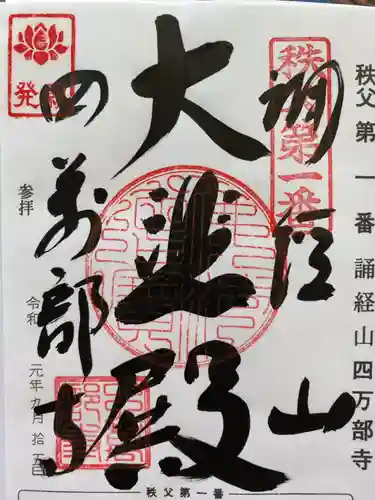 秩父第一番 誦経山四万部寺
秩父第一番
誦経山
大悲殿
発願
四萬部寺
参拝
令和元年九月拾五日
秩父第一番